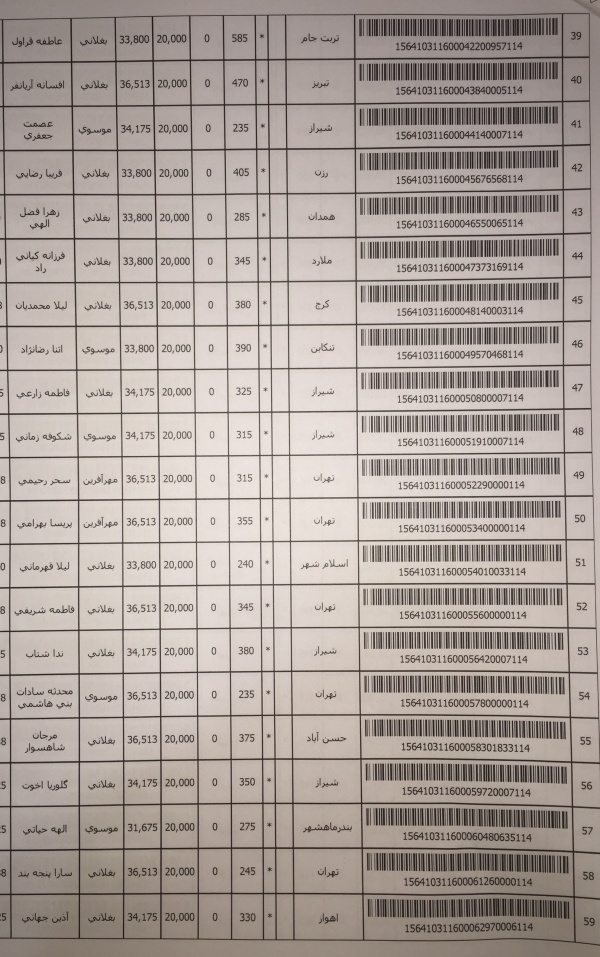 39 156410311600042200957114 تربت جام * 585 0 20,000 33,800 بغلاني عاطفه قراول
40 156410311600043840005114 تبريز * 470 0 20,000 36,513 بغلاني افسانه آريانفر
41 156410311600044140007114 شيراز * 235 0 20,000 34,175 موسوي عصمت
جعفري
42 156410311600045676568114 رزن * 405 0 20,000 33,800 بغلاني فريبا رضايي
43 156410311600046550065114 همدان * 285 0 20,000 33,800 بغلاني زهرا فضل
الهي
44 156410311600047373169114 ملارد * 345 0 20,000 33,800 بغلاني فرزانه كياني
راد
45 156410311600048140003114 كرج * 380 0 20,000 36,513 بغلاني ليلا محمديان
46 156410311600049570468114 تنكابن * 390 0 20,000 33,800 موسوي اتنا رضانژاد
47 156410311600050800007114 شيراز * 325 0 20,000 34,175 بغلاني فاطمه زارعي
48 156410311600051910007114 شيراز * 315 0 20,000 34,175 موسوي شكوفه زماني
49 156410311600052290000114 تهران * 315 0 20,000 36,513 مهرآفرين سحر رحيمي
50 156410311600053400000114 تهران * 355 0 20,000 36,513 مهرآفرين پريسا بهرامي
51 156410311600054010033114 اسلام شهر * 240 0 20,000 33,800 بغلاني ليلا قهرماني
52 156410311600055600000114 تهران * 345 0 20,000 36,513 بغلاني فاطمه شريفي
53 156410311600056420007114 شيراز * 380 0 20,000 34,175 بغلاني ندا شتاب
54 156410311600057800000114 تهران * 235 0 20,000 36,513 موسوي محدثه سادات
بني هاشمي
55 156410311600058301833114 حسن آباد * 375 0 20,000 36,513 بغلاني مرجان
شاهسوار
56 156410311600059720007114 شيراز * 350 0 20,000 34,175 بغلاني گلوريا اخوت
57 156410311600060480635114 بندرماهشهر * 275 0 20,000 31,675 موسوي الهه حياتي
58 156410311600061260000114 تهران * 245 0 20,000 36,513 بغلاني سارا پنجه بند
59 156410311600062970006114 اهواز * 330 0 20,000 34,175 بغلاني آذين جهاني